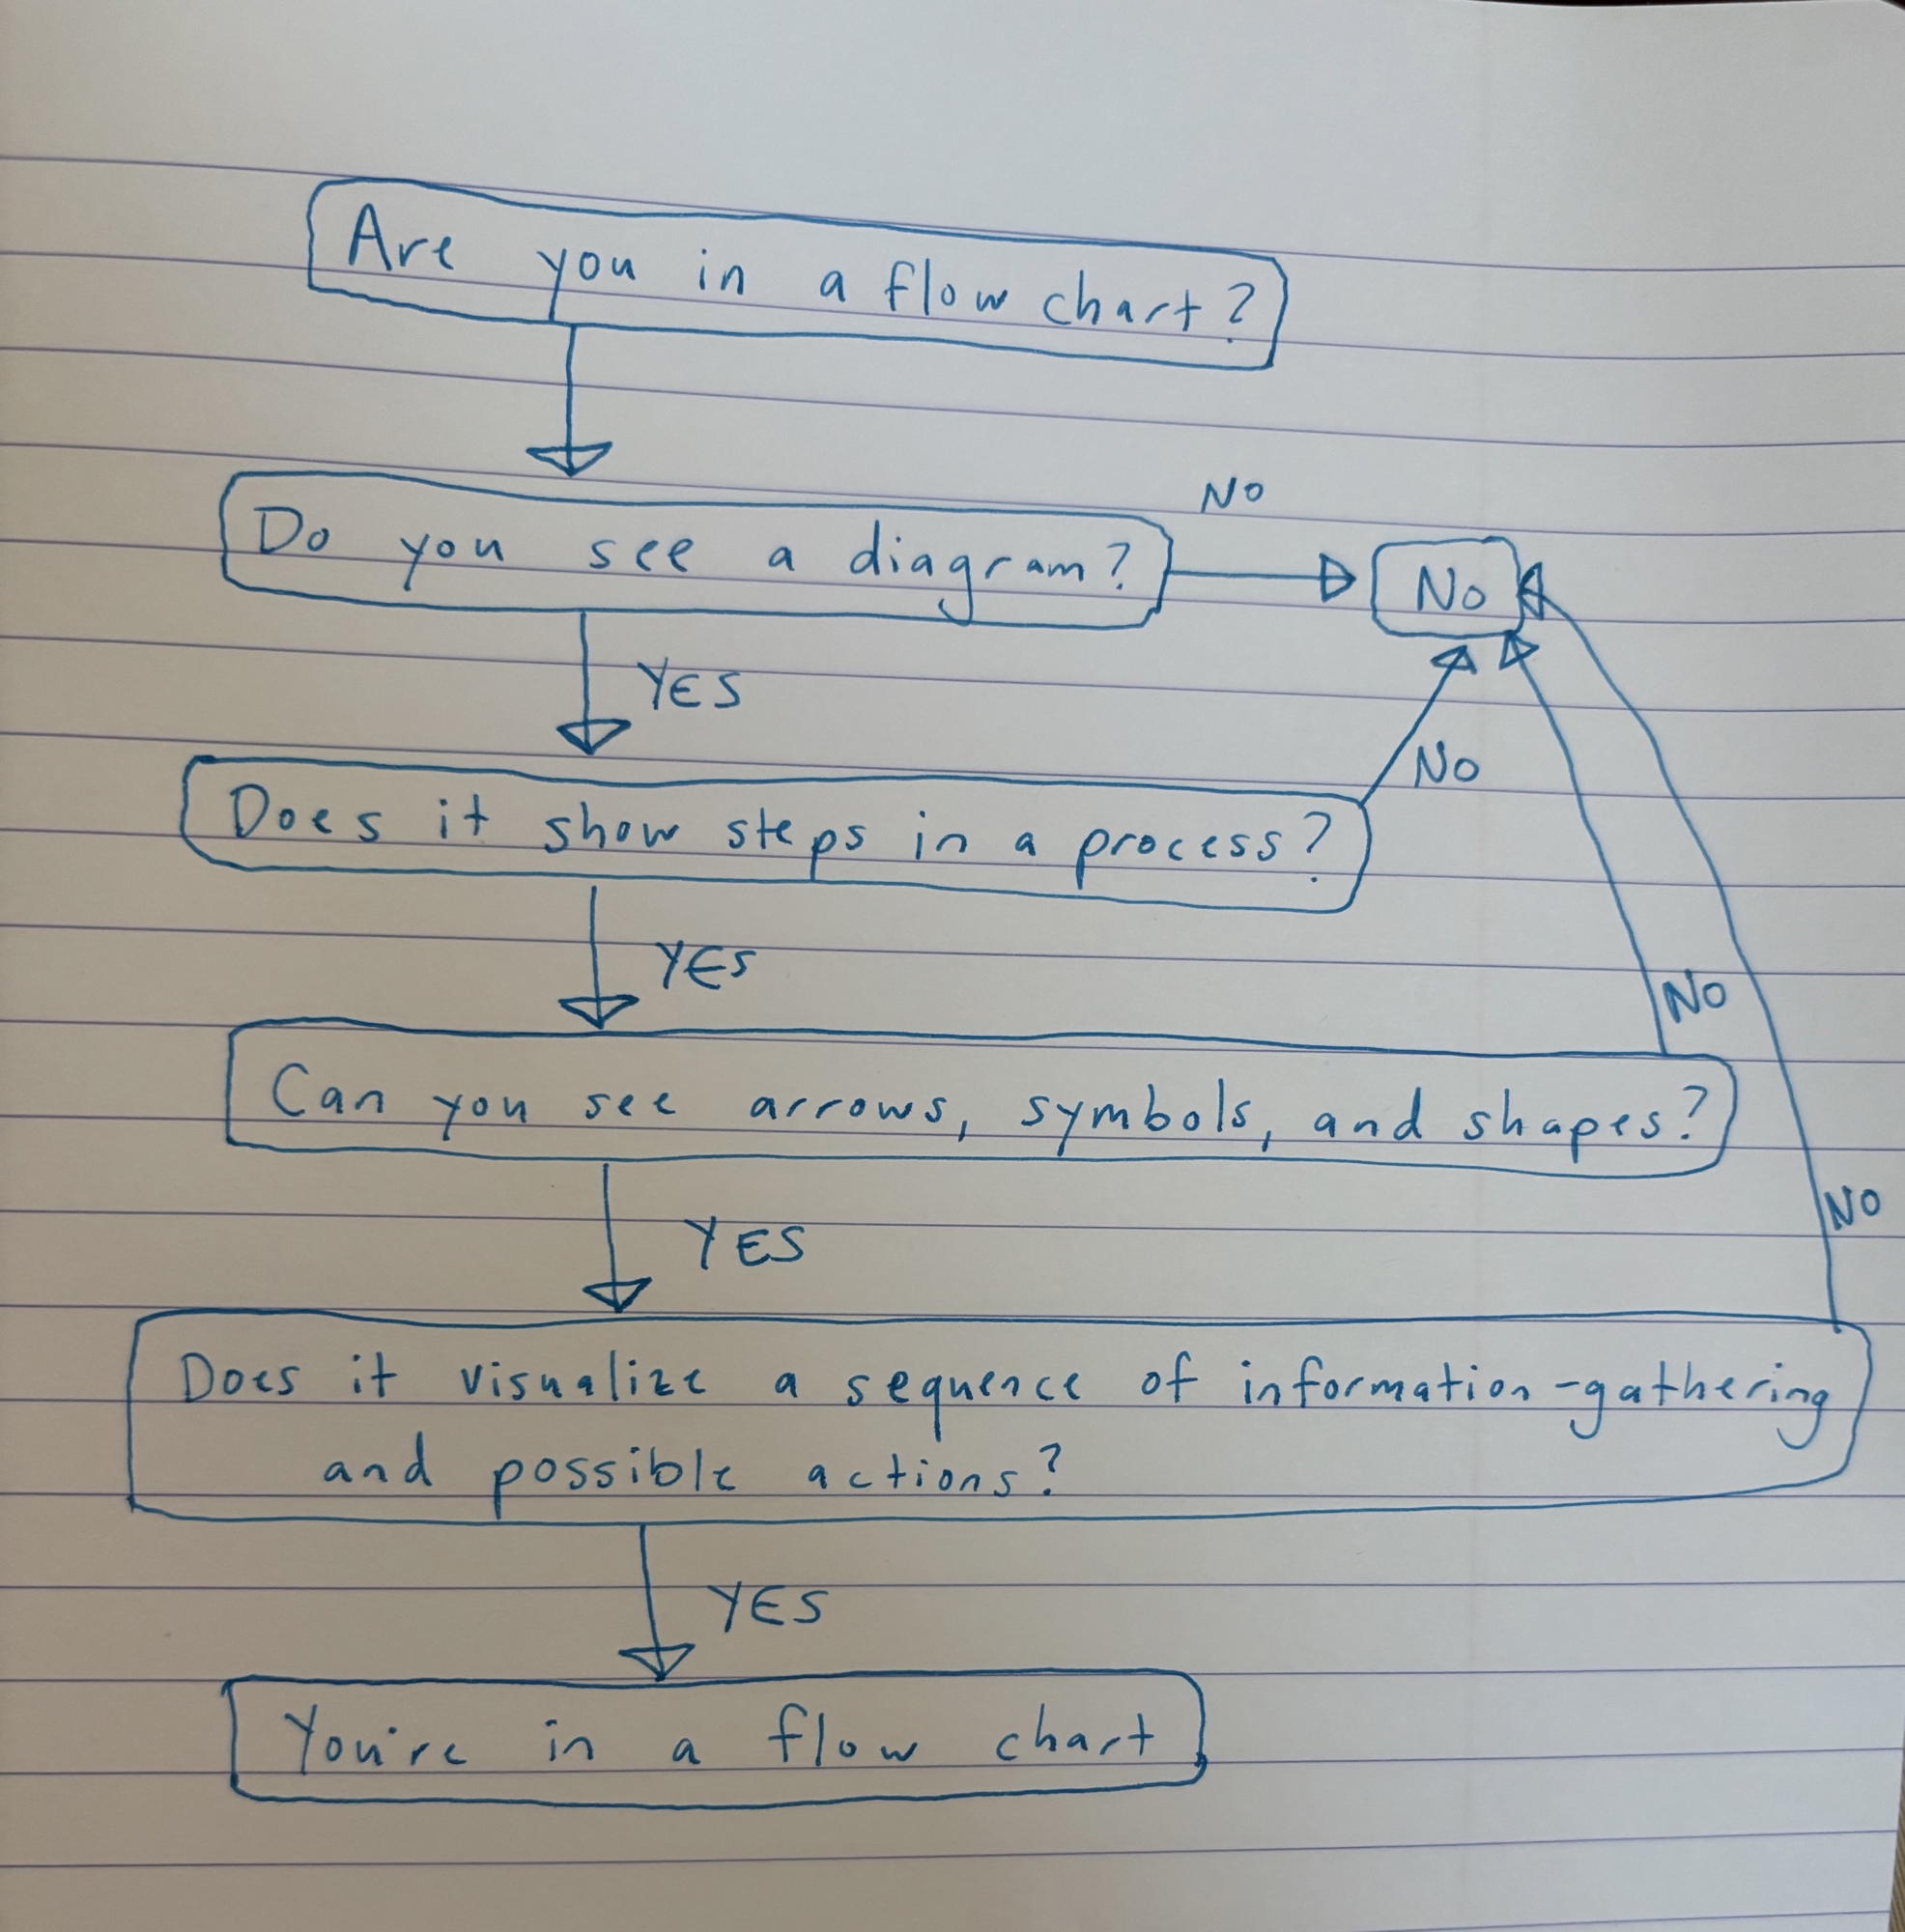 Are you in a flow chart?
NO
Do you see a diagram?
No
YES
No
Does it show steps in a process?
YES
NO
Can you see arrows, symbols, and shapes?
YES
NO
Does it visualize a sequence of information-gathering
and possible actions?
YES
You're in a flow chart